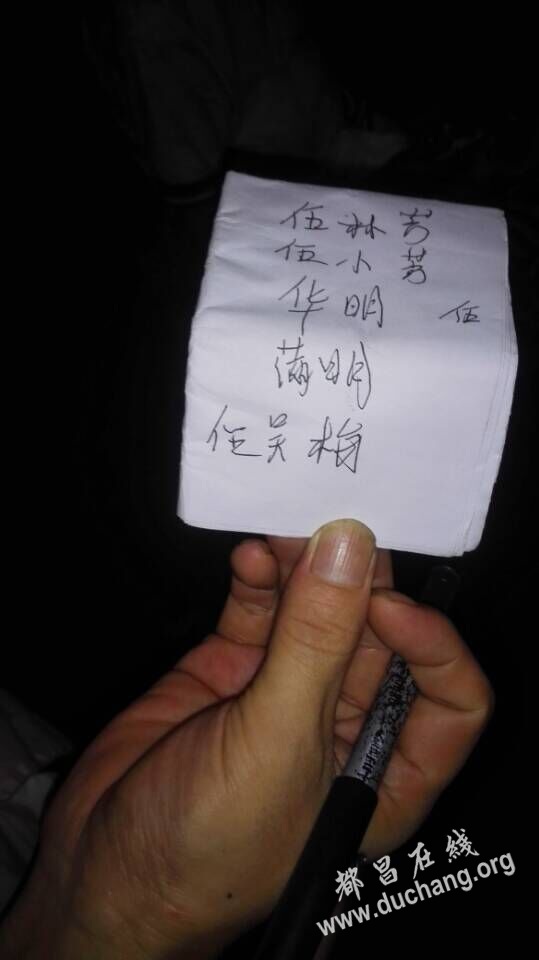 伍林芳
伍小芳
华明 伍
满明
伍吴梅
都昌在线
www.duchang.org